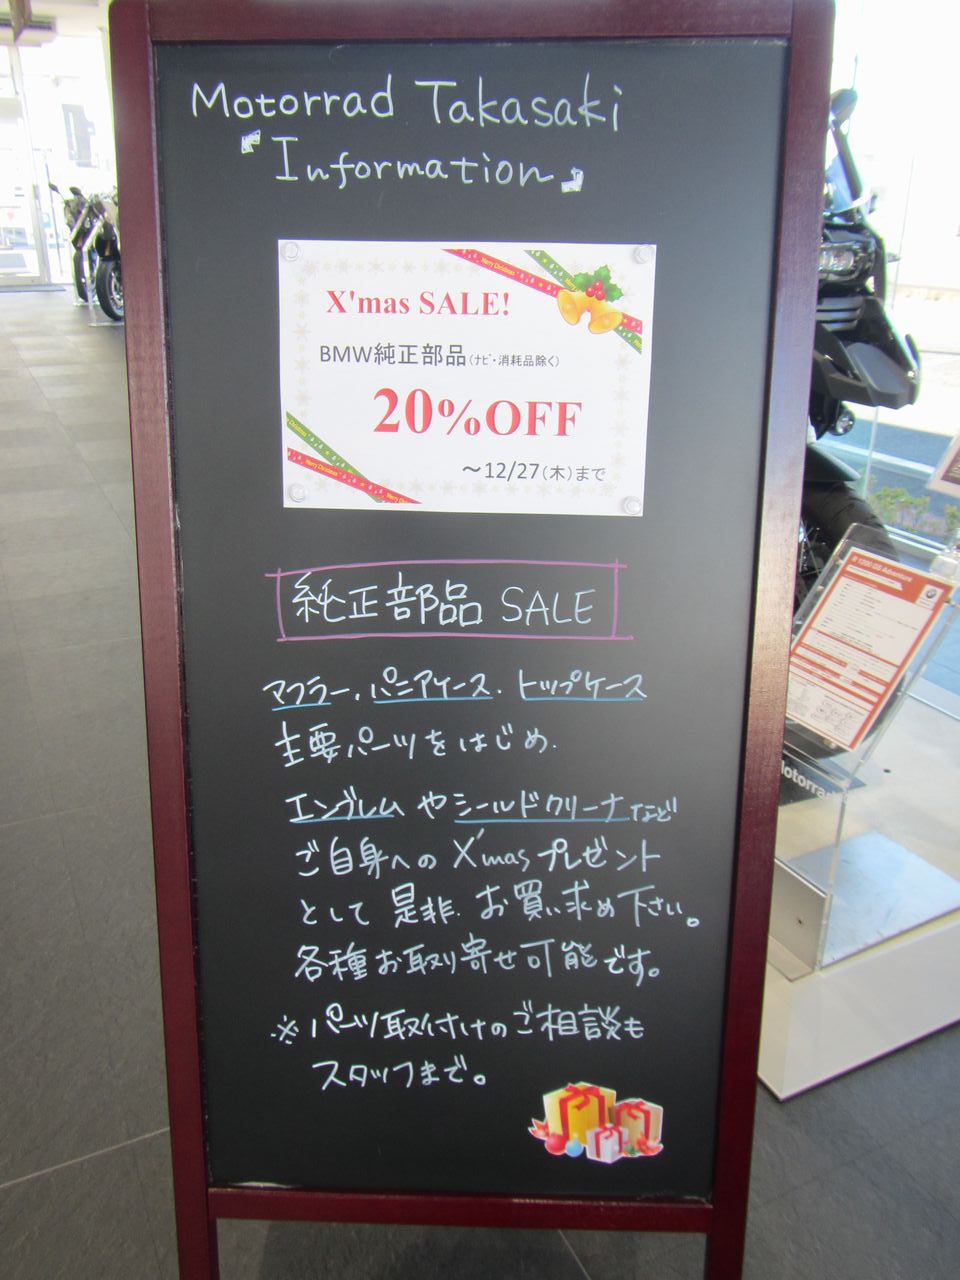 Motorrad Takasaki
『Information』
Merry Christmas
X'mas SALE!
BMW純正部品(ナビ・消耗品除く)
20%OFF
Merry Christmas
～12/27(木)まで
純正部品 SALE
マフラー、パニアケース、トップケース
主要パーツをはじめ、
エンブレムやシールドクリーナなど
ご自身へのX'masプレゼント
として是非、お買い求め下さい。
各種お取り寄せ可能です。
※パーツ取付けのご相談も
スタッフまで。
R 1200 GS Adventure
Motorrad